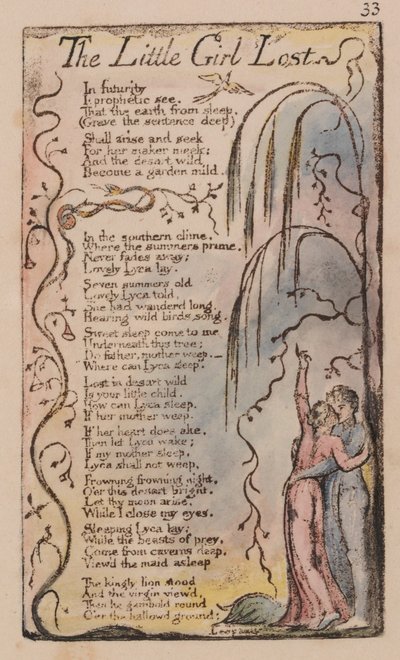 33
The Little Girl Lost
In futurity
I prophetic see,
That the earth from sleep,
(Grave the sentence deep)
Shall arise and seek
For her maker meek:
And the desart wild
Become a garden mild.
In the southern clime,
Where the summers prime,
Never fades away;
Lovely Lyca lay.
Seven summers old
Lovely Lyca told,
She had wanderd long,
Hearing wild birds song.
Sweet sleep come to me
Underneath this tree;
Do father, mother weep.—
Where can Lyca sleep.
Lost in desart wild
Is your little child.
How can Lyca sleep,
If her mother weep.
If her heart does ake,
Then let Lyca wake;
If my mother sleep,
Lyca shall not weep.
Frowning frowning night,
O'er this desart bright,
Let thy moon arise,
While I close my eyes.
Sleeping Lyca lay;
While the beasts of prey,
Come from caverns deep,
View'd the maid asleep
The kingly lion stood
And the virgin view'd,
Then he gambold round
O'er the hallowd ground;
Leopards